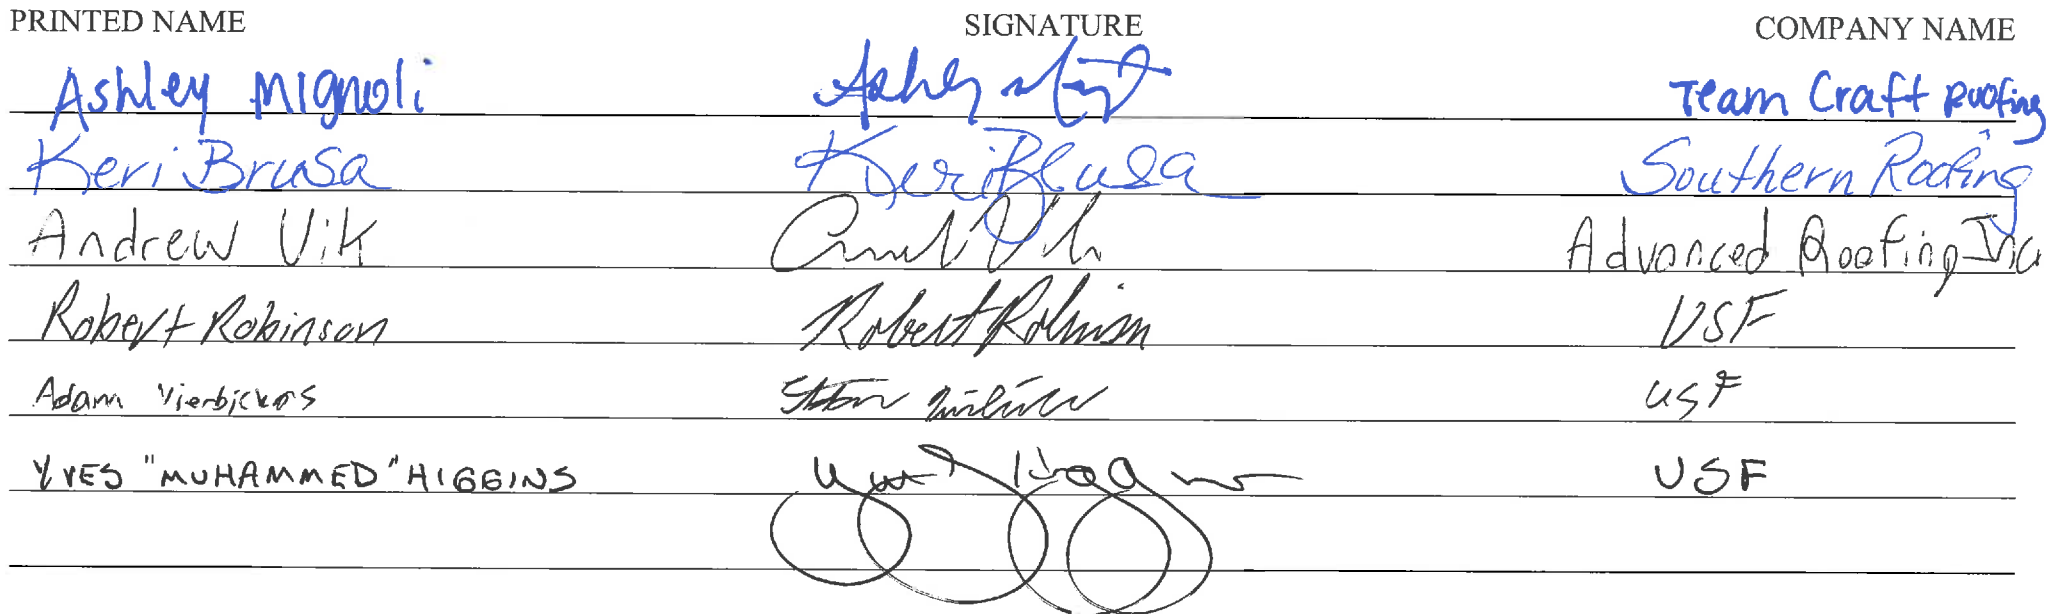 PRINTED NAME SIGNATURE COMPANY NAME
Ashley Mignoli Ashley Team Craft Roofing
Keri Brusa Keri Brusa Southern Roofing
Andrew Vik Advanced Roofing Inc
Robert Robinson Robert Robinson USF
Adam USF
YVES "MUHAMMED" HIGGINS USF